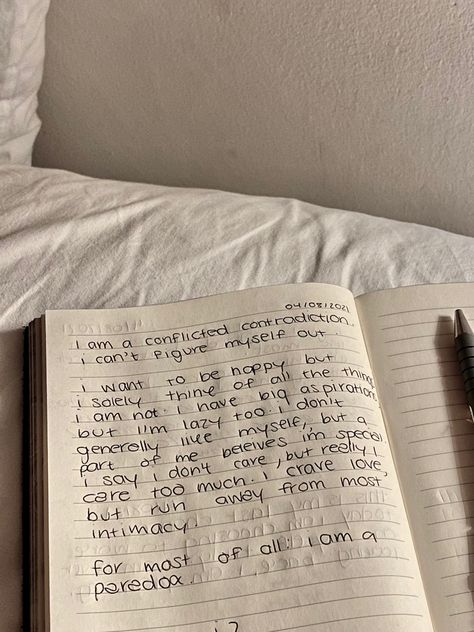 04/08/2021
I am a conflicted contradiction.
i can't figure myself out.
i want to be happy, but
i solely think of all the things
I am not. I have big aspirations
but I'm lazy too. I don't
generally like myself, but a
part of me beleives i'm special.
i say I don't care, but really I
care too much. I crave love,
but run away from most
intimacy.
for most of all: I am a
paradox.